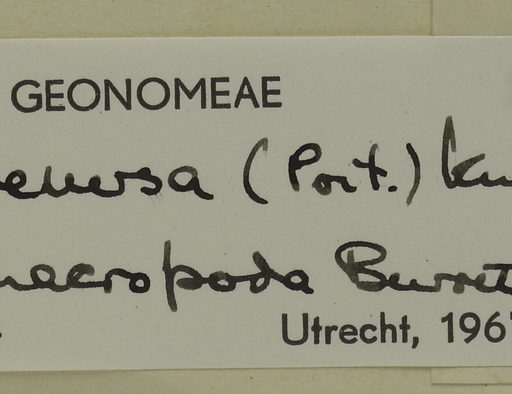 GEONOMEAE
(Poit.)
macropoda Burret
Utrecht, 196